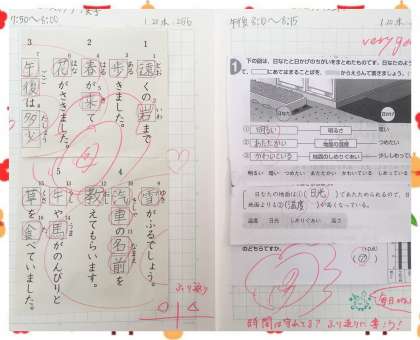 1
遠くの岩まで
歩きました。
2
春が来て
花がさきました。
3
午後は多少
4
雪がふるでしょう。
汽車の名前を
教えてもらいます。
5
牛や馬がのんびりと
草を食べていました。
ふり返り
午後 8:00〜8:15
very good
1
下の図は、日なたと日かげのちがいをまとめたものです。
にあてはまることばを、
からえらんで書きましょう。
日なた
日かげ
① 明るい
明るさ
暗い
② あたたかい
地面の温度
つめたい
③ かわいている
地面のしめりぐあい
少ししめっている
明るい 暗い つめたい あたたかい かわいている しめっている
日なたの地面は(① 日光)であたためられるので、日かげの
地面より(② 温度)が高くなっている。
温度 日光 しめりぐあい 高さ
のどちらですか。
㋐
毎日
時間は守れてる? ふり返りに書こう!